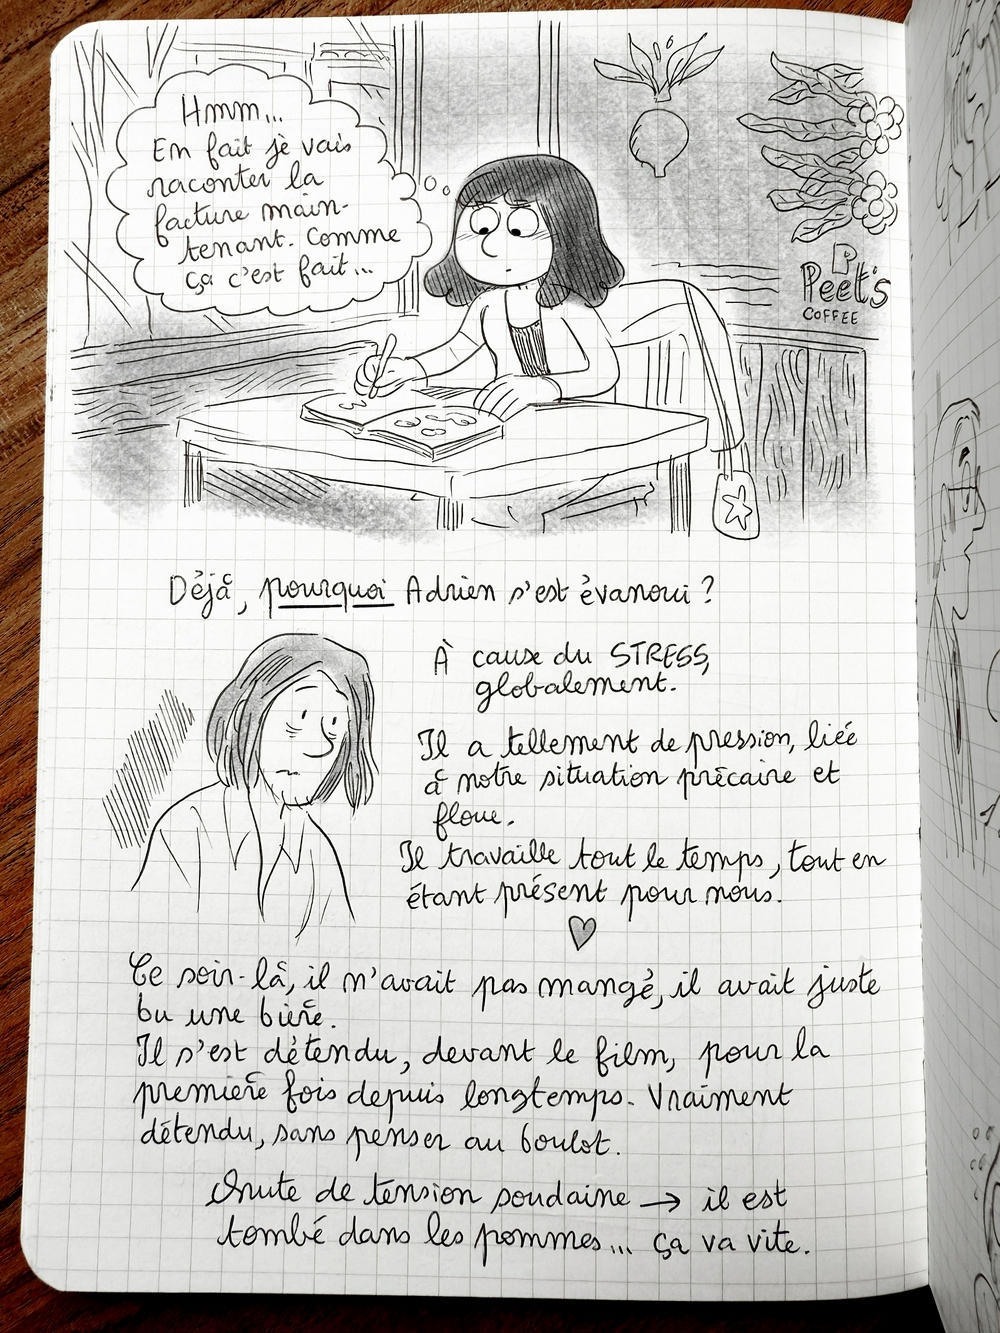 Hmm...
En fait je vais
raconter la
facture main-
tenant. Comme
ça c'est fait...
P
Peet's
COFFEE
Déjà, pourquoi Adrien s'est évanoui ?
À cause du STRESS,
globalement.
Il a tellement de pression, liée
à notre situation précaire et
floue.
Il travaille tout le temps, tout en
étant présent pour nous.
Ce soir-là, il n'avait pas mangé, il avait juste
bu une bière.
Il s'est détendu, devant le film, pour la
première fois depuis longtemps. Vraiment
détendu, sans penser au boulot.
Chute de tension soudaine → il est
tombé dans les pommes... ça va vite.